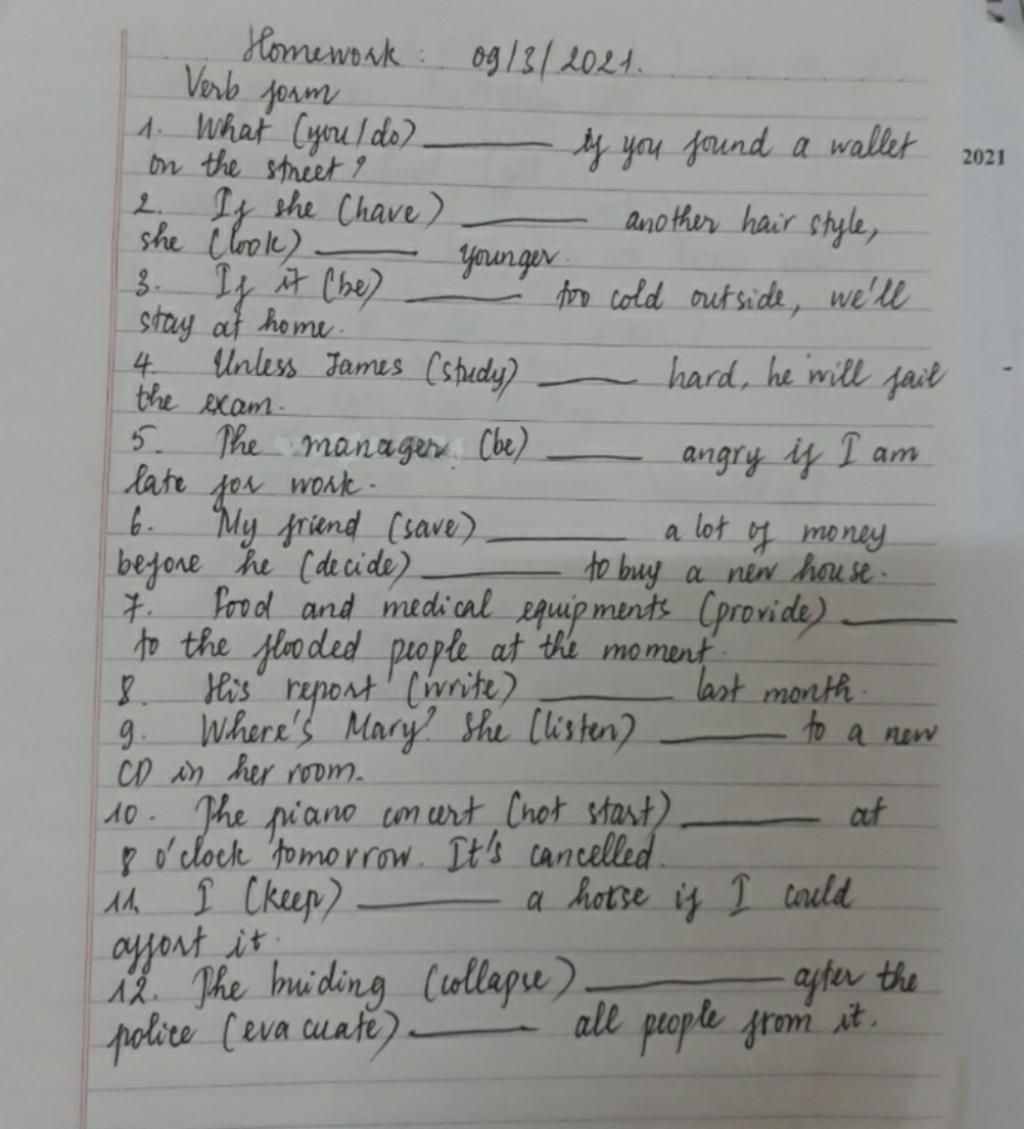 Homework : 09/3/2021.
Verb form
1. What (you/do) ________ if you found a wallet
2021
on the street?
2. If she (have) ________ another hair style,
she (look) ________ younger.
3. If it (be) ________ too cold outside, we'll
stay at home.
4. Unless James (study) ________ hard, he will fail
the exam.
5. The manager (be) ________ angry if I am
late for work.
6. My friend (save) ________ a lot of money
before he (decide) ________ to buy a new house.
7. Food and medical equipments (provide) ________
to the flooded people at the moment.
8. His report (write) ________ last month.
9. Where's Mary? She (listen) ________ to a new
CD in her room.
10. The piano concert (not start) ________ at
8 o'clock tomorrow. It's cancelled.
11. I (keep) ________ a horse if I could
affort it.
12. The buiding (collapse) ________ after the
police (evacuate) ________ all people from it.